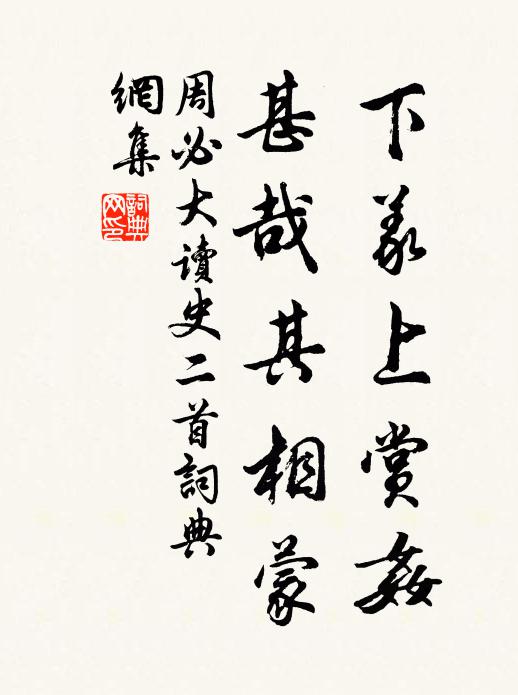 下義上賞姦
甚哉其相蒙
周必大讀史二首詞典
網集
詞典
网印